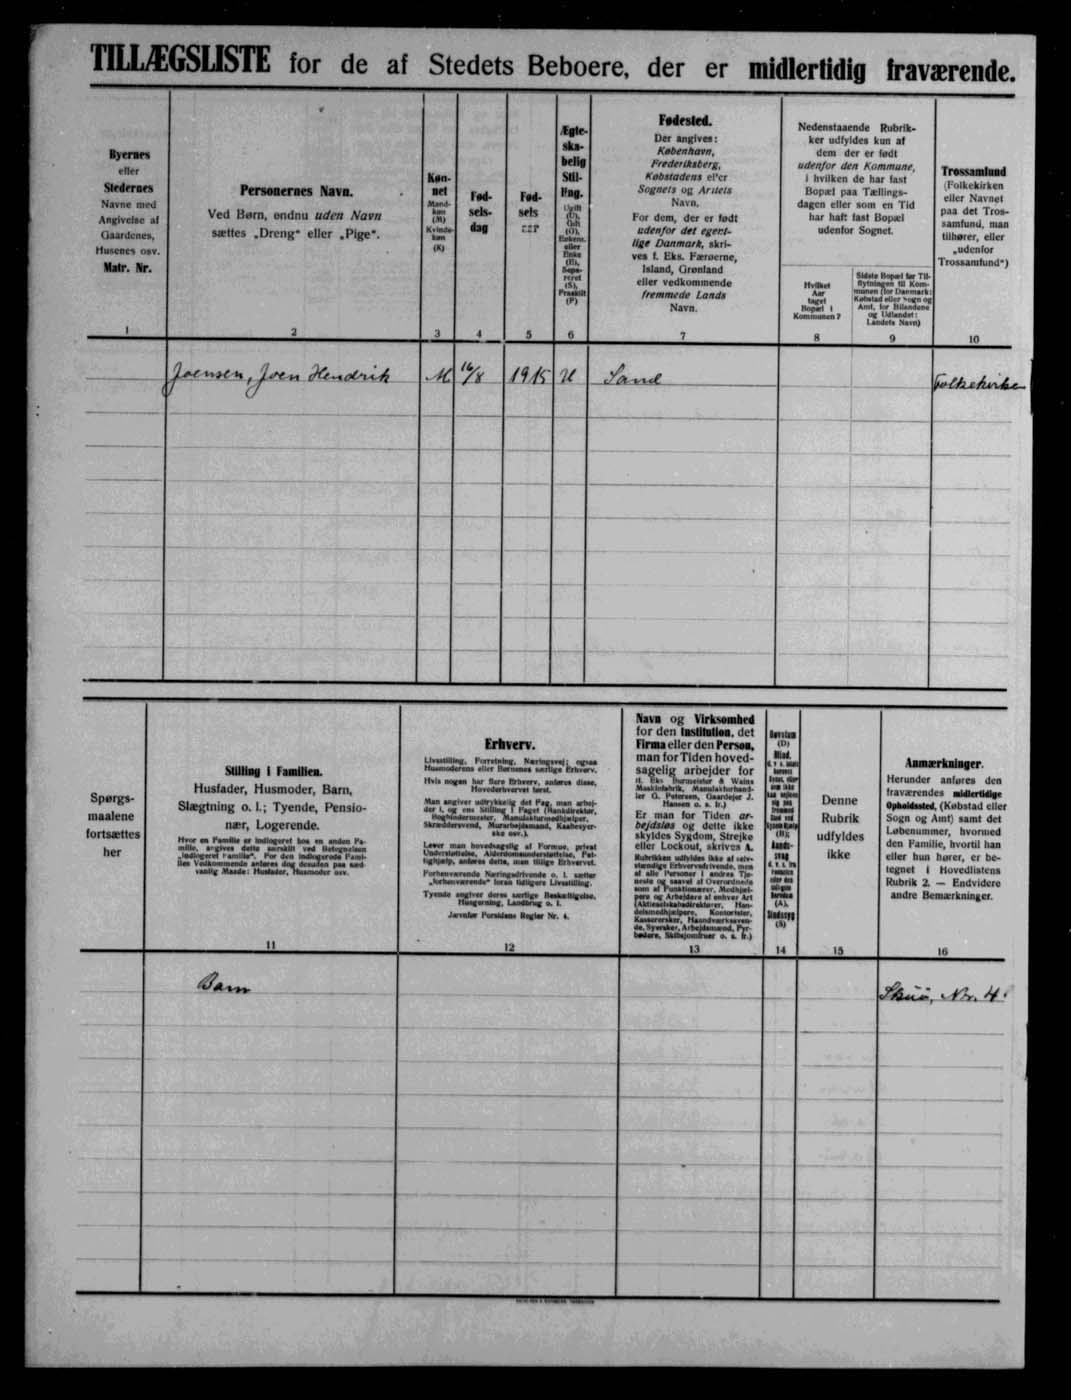 TILLÆGSLISTE for de af Stedets Beboere, der er midlertidig fraværende.
Byernes
eller
Stedernes
Navne med
Angivelse af
Gaardenes,
Husenes osv.
Matr. Nr.
1
Personernes Navn.
Ved Børn, endnu uden Navn
sættes „Dreng“ eller „Pige“.
2
Køn-
net
Mand-
køn
(M)
Kvinde-
køn
(K)
3
Fød-
sels-
dag
4
Fød-
sels
aar
5
Ægte-
ska-
belig
Stil-
ling.
Ugift
(U),
Gift
(G),
Enkem.
eller
Enke
(E),
Sepa-
reret
(S),
Fraskilt
(F)
6
Fødested.
Der angives:
København,
Frederiksberg,
Købstadens eller
Sognets og Amtets
Navn.
For dem, der er født
udenfor det egent-
lige Danmark, skri-
ves f. Eks. Færøerne,
Island, Grønland
eller vedkommende
fremmede Lands
Navn.
7
Nedenstaaende Rubrik-
ker udfyldes kun af
dem der er født
udenfor den Kommune,
i hvilken de har fast
Bopæl paa Tællings-
dagen eller som en Tid
har haft fast Bopæl
udenfor Sognet.
Hvilket
Aar
taget
Bopæl i
Kommunen?
8
Sidste Bopæl før Til-
flytningen til Kom-
munen (for Danmark:
Købstad eller Sogn og
Amt, for Bilandene
og Udlandet:
Landets Navn)
9
Trossamfund
(Folkekirken
eller Navnet
paa det Tros-
samfund, man
tilhører, eller
„udenfor
Trossamfund“)
10
Joensen, Joen Hendrik M 16/8 1915 U Sand Folkekirken
Spørgs-
maalene
fortsættes
her
Stilling i Familien.
Husfader, Husmoder, Barn,
Slægtning o. l.; Tyende, Pensio-
nær, Logerende.
Hvor en Familie er indlogeret hos en anden Fa-
milie, angives dette særskilt ved Betegnelsen
„indlogeret Familie“. For den indlogerede Fami-
lies Vedkommende anføres dog desuden paa sæd-
vanlig Maade: Husfader, Husmoder osv.
11
Erhverv.
Livsstilling, Forretning, Næringsvej; ogsaa
Husmoderens eller Børnenes særlige Erhverv.
Hvis nogen har flere Erhverv, anføres disse,
Hovederhvervet først.
Man angiver udtrykkelig det Fag, man arbej-
der i, og ens Stilling i Faget (Bankdirektør,
Bogbindermester, Manufakturmedhjælper,
Skræddersvend, Murarbejdsmand, Kaabesyer-
ske osv.).
Lever man hovedsagelig af Formue, privat
Understøttelse, Alderdomsunderstøttelse, Fat-
tighjælp, anføres dette, man tillige Erhvervet.
Forhenværende Næringsdrivende o. l. sætter
„forhenværende“ foran tidligere Livsstilling.
Tyende angiver deres særlige Beskæftigelse,
Husgerning, Landbrug o. l.
Jævnfør Forsidens Regler Nr. 4.
12
Navn og Virksomhed
for den Institution, det
Firma eller den Person,
man for Tiden hoved-
sagelig arbejder for
(f. Eks. Burmeister & Wains
Maskinfabrik, Manufakturhand-
ler G. Petersen, Gaardejer J.
Hansen o. s. fr.)
Er man for Tiden ar-
bejdsløs og dette ikke
skyldes Sygdom, Strejke
eller Lockout, skrives A.
Rubrikken udfyldes ikke af selv-
stændige Erhvervsdrivende, men
af alle Personer i andres Tje-
neste og saavel af Overordnede
som af Funktionærer, Medhjæl-
pere og Arbejdere af enhver Art
(Aktieselskabsdirektører, Han-
delsmedhjælpere, Kontorister,
Kasserersker, Haandværkssven-
de, Syersker, Arbejdsmænd, Fyr-
bødere, Skibsjomfruer o. s. fr.)
13
Døvstum
(D)
Blind,
(B);
Aands-
svag
(A),
Sindssyg
(S)
14
Denne
Rubrik
udfyldes
ikke
15
Anmærkninger.
Herunder anføres den
fraværendes midlertidige
Opholdssted, (Købstad eller
Sogn og Amt) samt det
Løbenummer, hvormed
den Familie, hvortil han
eller hun hører, er be-
tegnet i Hovedlistens
Rubrik 2. — Endvidere
andre Bemærkninger.
16
Barn Skúø, Nr. 4.